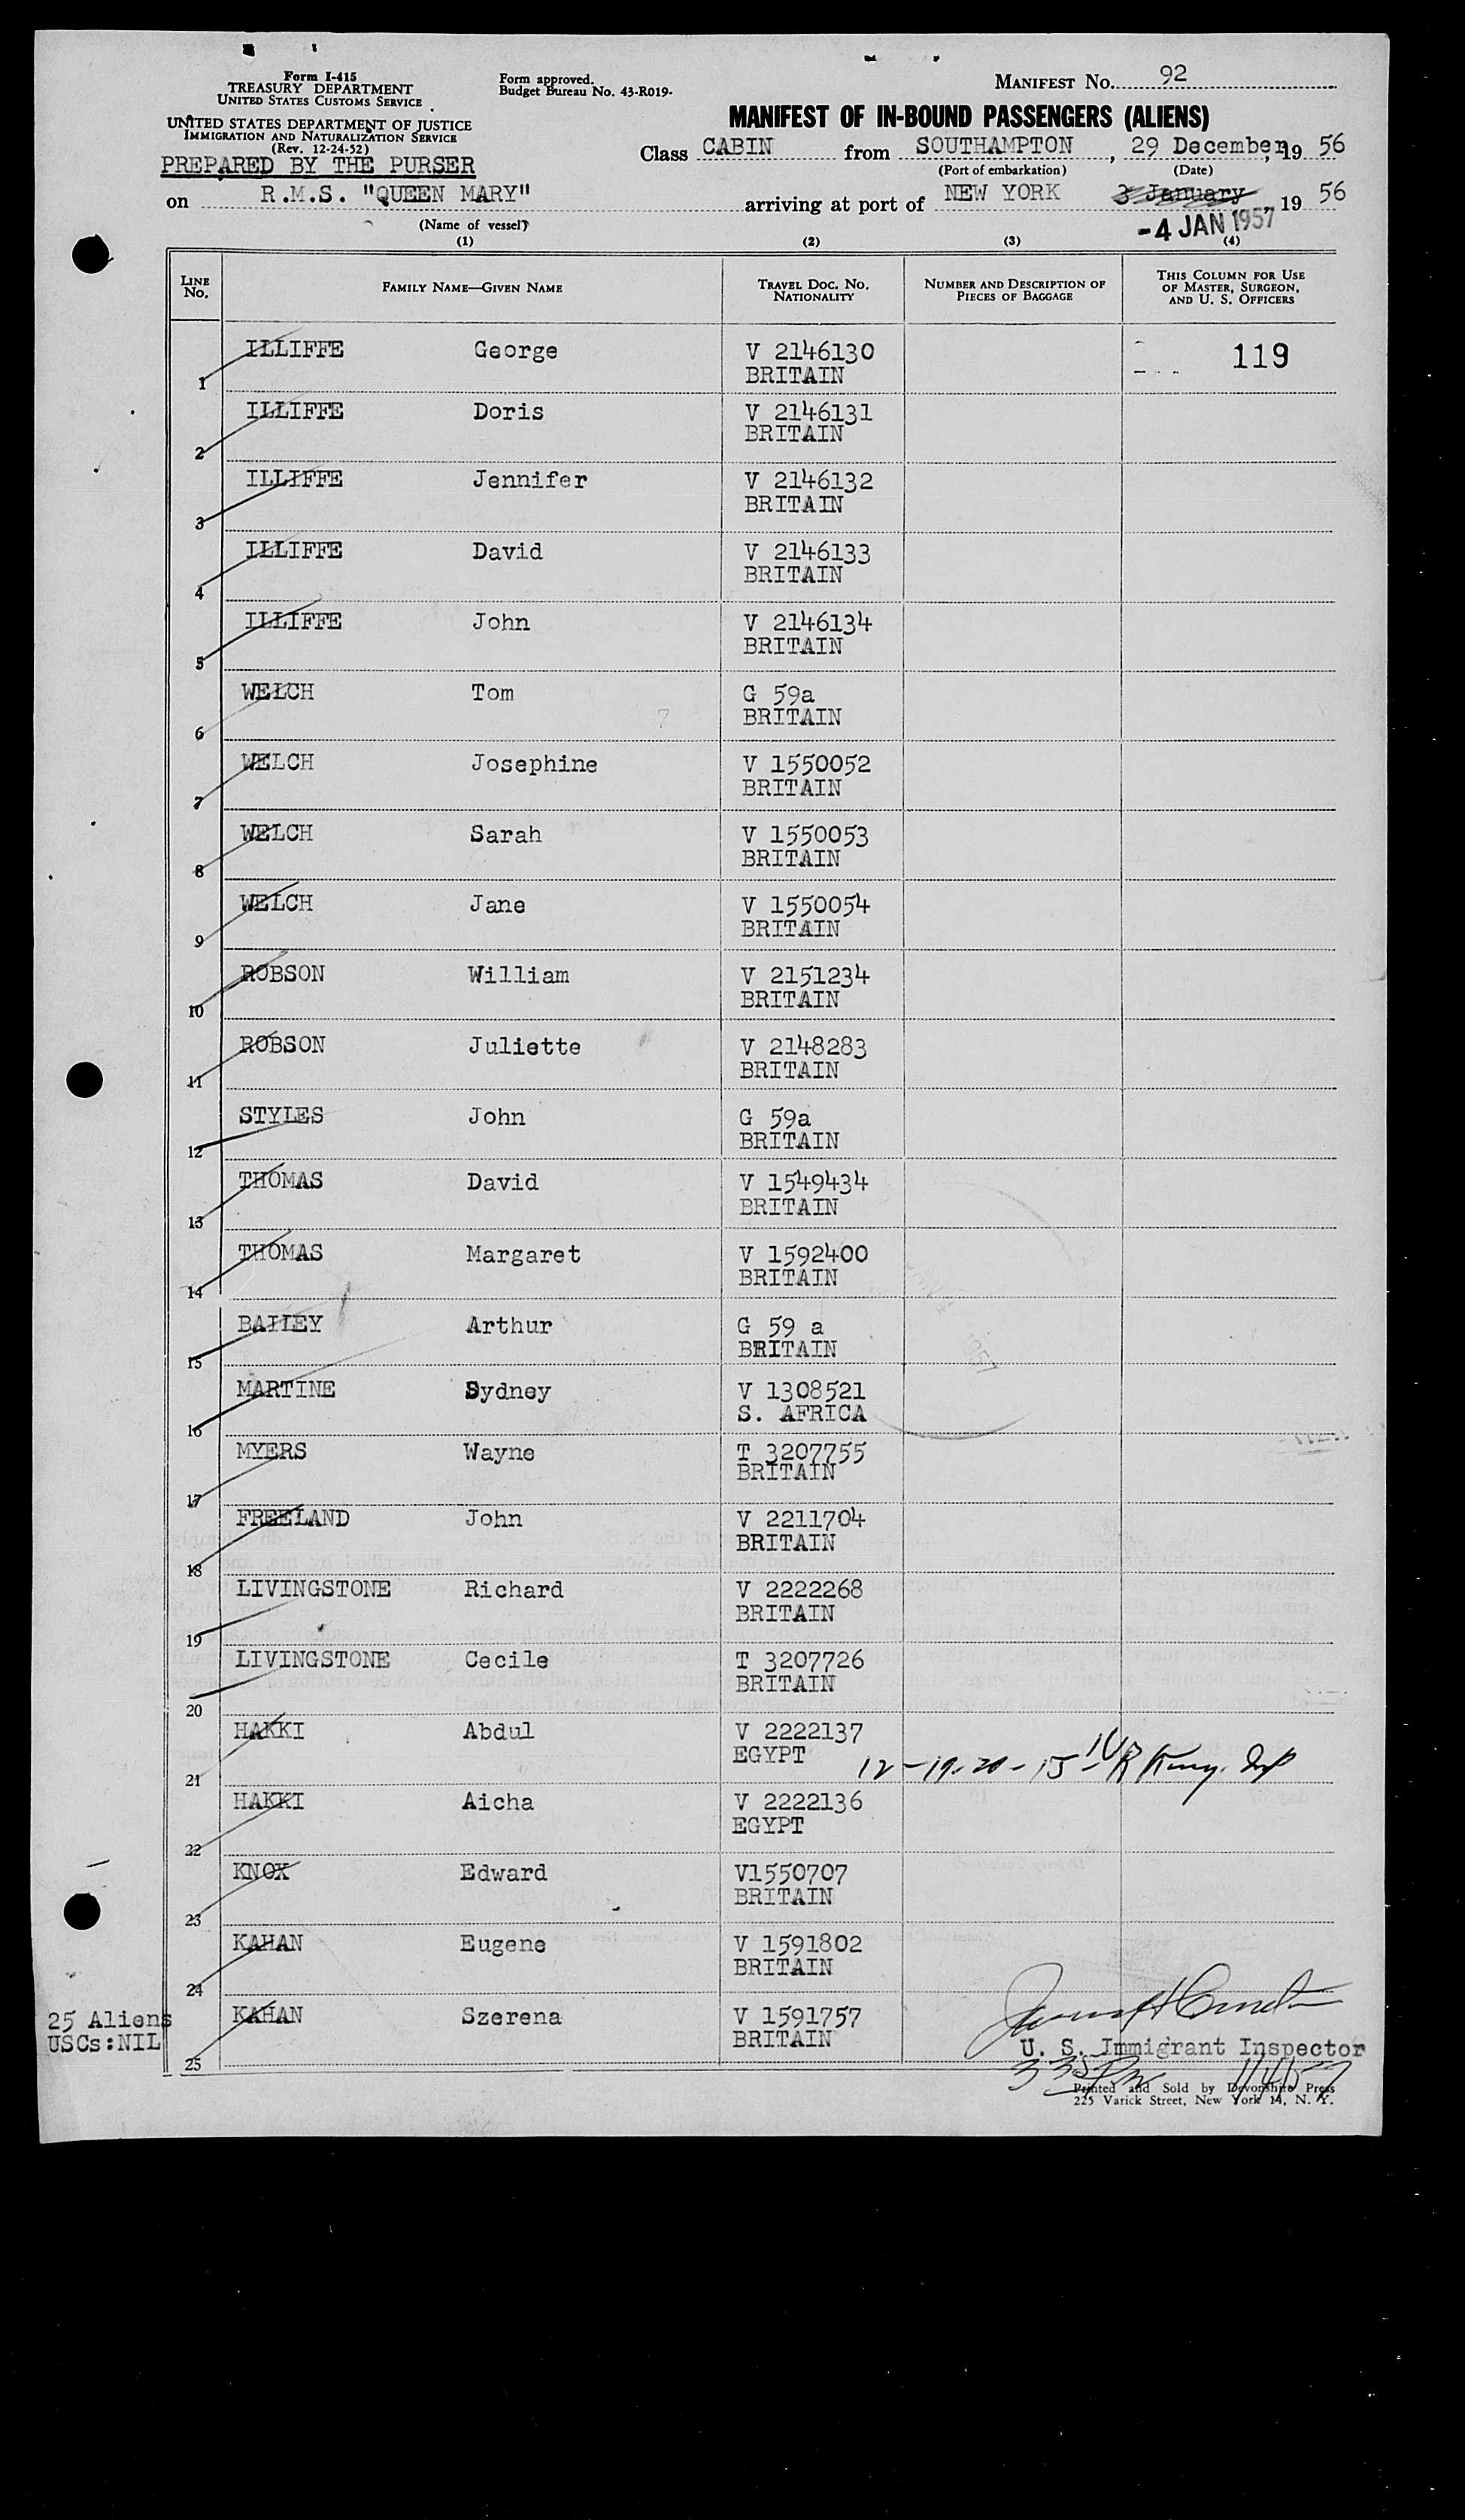 Form I-415
TREASURY DEPARTMENT
UNITED STATES CUSTOMS SERVICE
UNITED STATES DEPARTMENT OF JUSTICE
IMMIGRATION AND NATURALIZATION SERVICE
(Rev. 12-24-52)
PREPARED BY THE PURSER
Form approved.
Budget Bureau No. 43-R019-
MANIFEST NO. 92
MANIFEST OF IN-BOUND PASSENGERS (ALIENS)
Class CABIN from SOUTHAMPTON, 29 December, 19 56
(Port of embarkation) (Date)
on R.M.S. "QUEEN MARY" arriving at port of NEW YORK 3 January, 19 56
(Name of vessel)
-4 JAN 1957
(1) (2) (3) (4)
LINE NO. FAMILY NAME—GIVEN NAME TRAVEL DOC. NO. NATIONALITY NUMBER AND DESCRIPTION OF PIECES OF BAGGAGE THIS COLUMN FOR USE OF MASTER, SURGEON, AND U. S. OFFICERS
1 ILLIFFE George V 2146130 119
BRITAIN
2 ILLIFFE Doris V 2146131
BRITAIN
3 ILLIFFE Jennifer V 2146132
BRITAIN
4 ILLIFFE David V 2146133
BRITAIN
5 ILLIFFE John V 2146134
BRITAIN
6 WELCH Tom G 59a
BRITAIN
7 WELCH Josephine V 1550052
BRITAIN
8 WELCH Sarah V 1550053
BRITAIN
9 WELCH Jane V 1550054
BRITAIN
10 ROBSON William V 2151234
BRITAIN
11 ROBSON Juliette V 2148283
BRITAIN
12 STYLES John G 59a
BRITAIN
13 THOMAS David V 1549434
BRITAIN
14 THOMAS Margaret V 1592400
BRITAIN
15 BAILEY Arthur G 59 a
BRITAIN
16 MARTINE Sydney V 1308521
S. AFRICA
17 MYERS Wayne T 3207755
BRITAIN
18 FREELAND John V 2211704
BRITAIN
19 LIVINGSTONE Richard V 2222268
BRITAIN
20 LIVINGSTONE Cecile T 3207726
BRITAIN
21 HAKKI Abdul V 2222137
EGYPT 12-19-20-15-
22 HAKKI Aicha V 2222136
EGYPT
23 KNOX Edward V1550707
BRITAIN
24 KAHAN Eugene V 1591802
BRITAIN
25 KAHAN Szerena V 1591757
BRITAIN
25 Aliens
USCs:NIL
U. S. Immigrant Inspector
1/4/57
Printed and Sold by Devonshire Press
225 Varick Street, New York 14, N. Y.